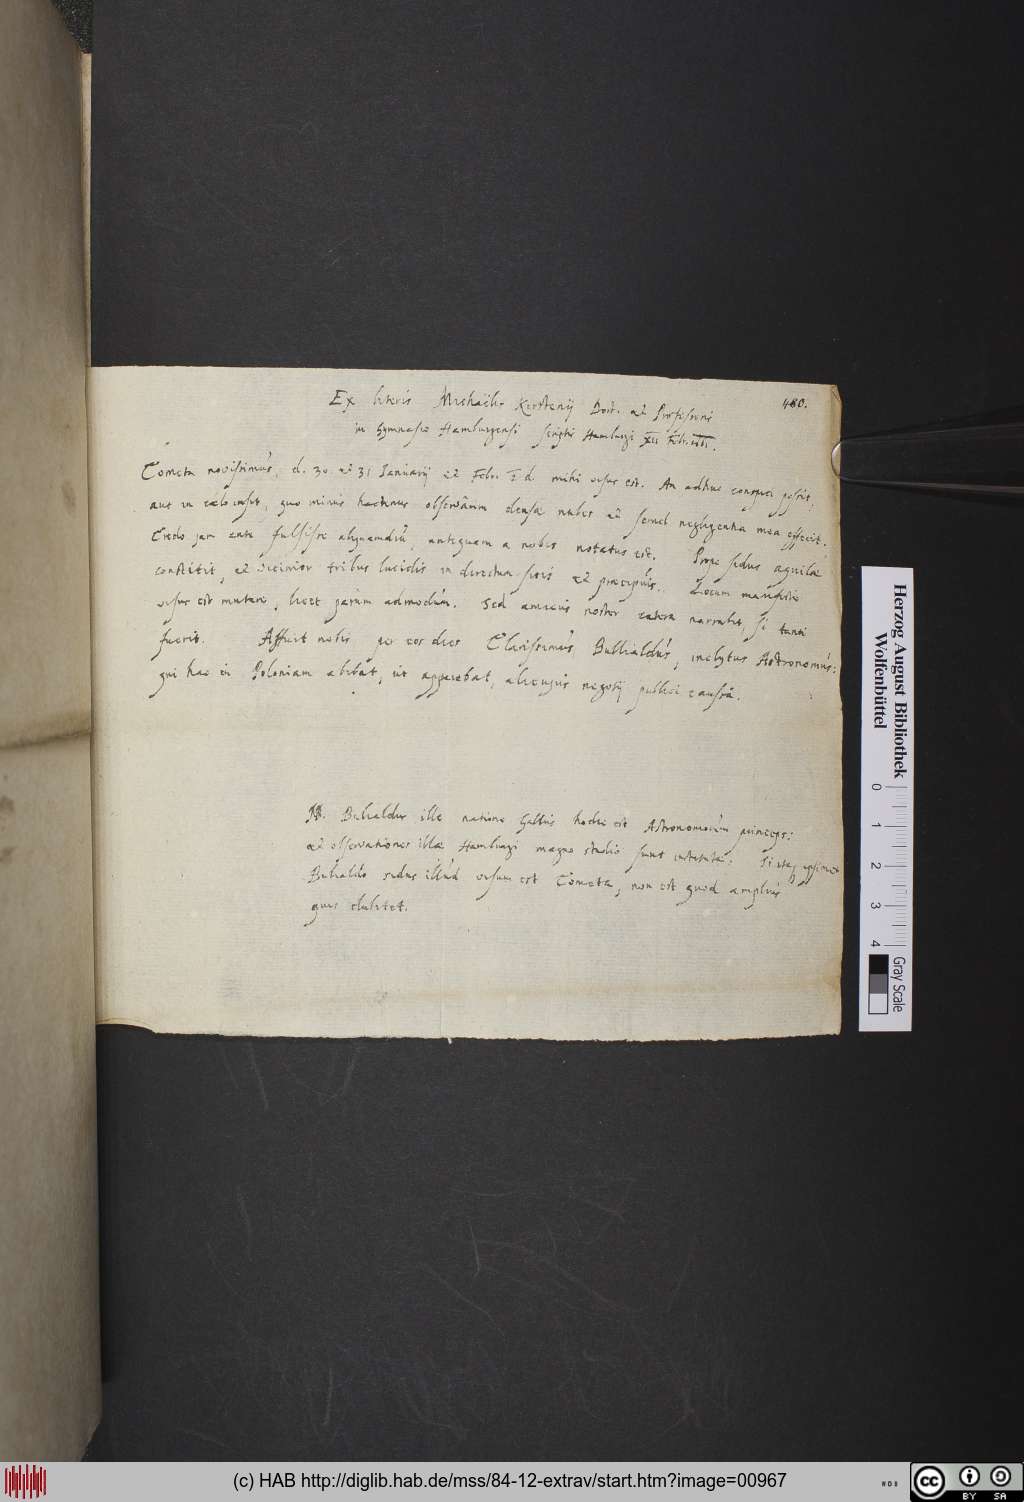 480.
Ex literis Michaëlis Kirstenij Doct. et Professoris
in Gymnasio Hamburgensi scriptis Hamburgi XII Febr.
Cometa novissimus, d. 30. et 31 Januarij et Febr. I d. mihi visus est. An adhuc conspici possit,
aut in cælo insit, quo minus hactenus observârim densæ nubes et semel negligentia mea effecit.
Credo jam ante fulsisse aliquamdiu, antequam a nobis notatus est. Prope sidus aquilæ
constitit, et vicinior tribus lucidis in directum sitis et præcipuis. Locum manifeste
visus est mutare, licet parum admodum. Sed amicus noster narrabit, si tanti
fuerit. Affuit nobis per eos dies Clarissimus Bullialdus, inclytus Astronomus:
qui hac in Poloniam abibat, ut apparebat, alicujus negotij publici caussâ.
NB. Bulialdus ille natione Gallus hodie est Astronomorum princeps:
et observationes illæ Hamburgi magno studio sunt institutæ: si itaq ipsimet
Bulialdo sidus illud visum est Cometa, non est quod amplius
quis dubitet.
Herzog August Bibliothek
Wolfenbüttel
0 1 2 3 4
Gray Scale
(c) HAB http://diglib.hab.de/mss/84-12-extrav/start.htm?image=00967
cc BY SA